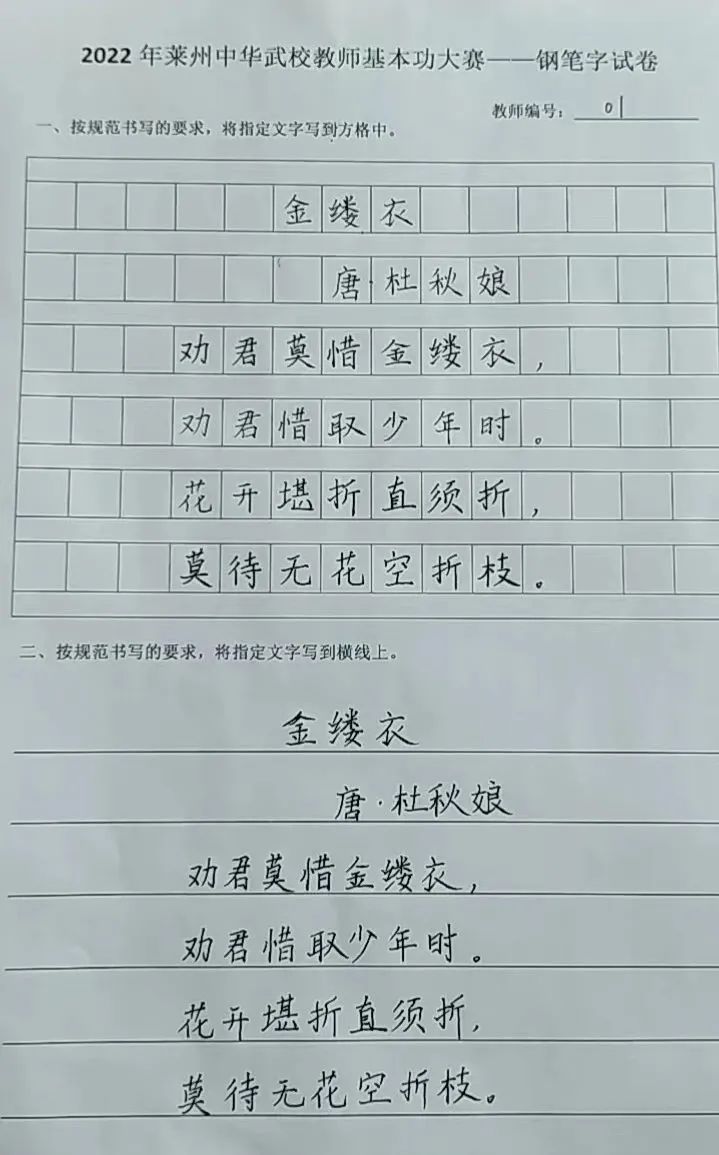 2022年莱州中华武校教师基本功大赛——钢笔字试卷
教师编号：01
一、按规范书写的要求，将指定文字写到方格中。
金缕衣
唐·杜秋娘
劝君莫惜金缕衣，
劝君惜取少年时。
花开堪折直须折，
莫待无花空折枝。
二、按规范书写的要求，将指定文字写到横线上。
金缕衣
唐·杜秋娘
劝君莫惜金缕衣，
劝君惜取少年时。
花开堪折直须折，
莫待无花空折枝。